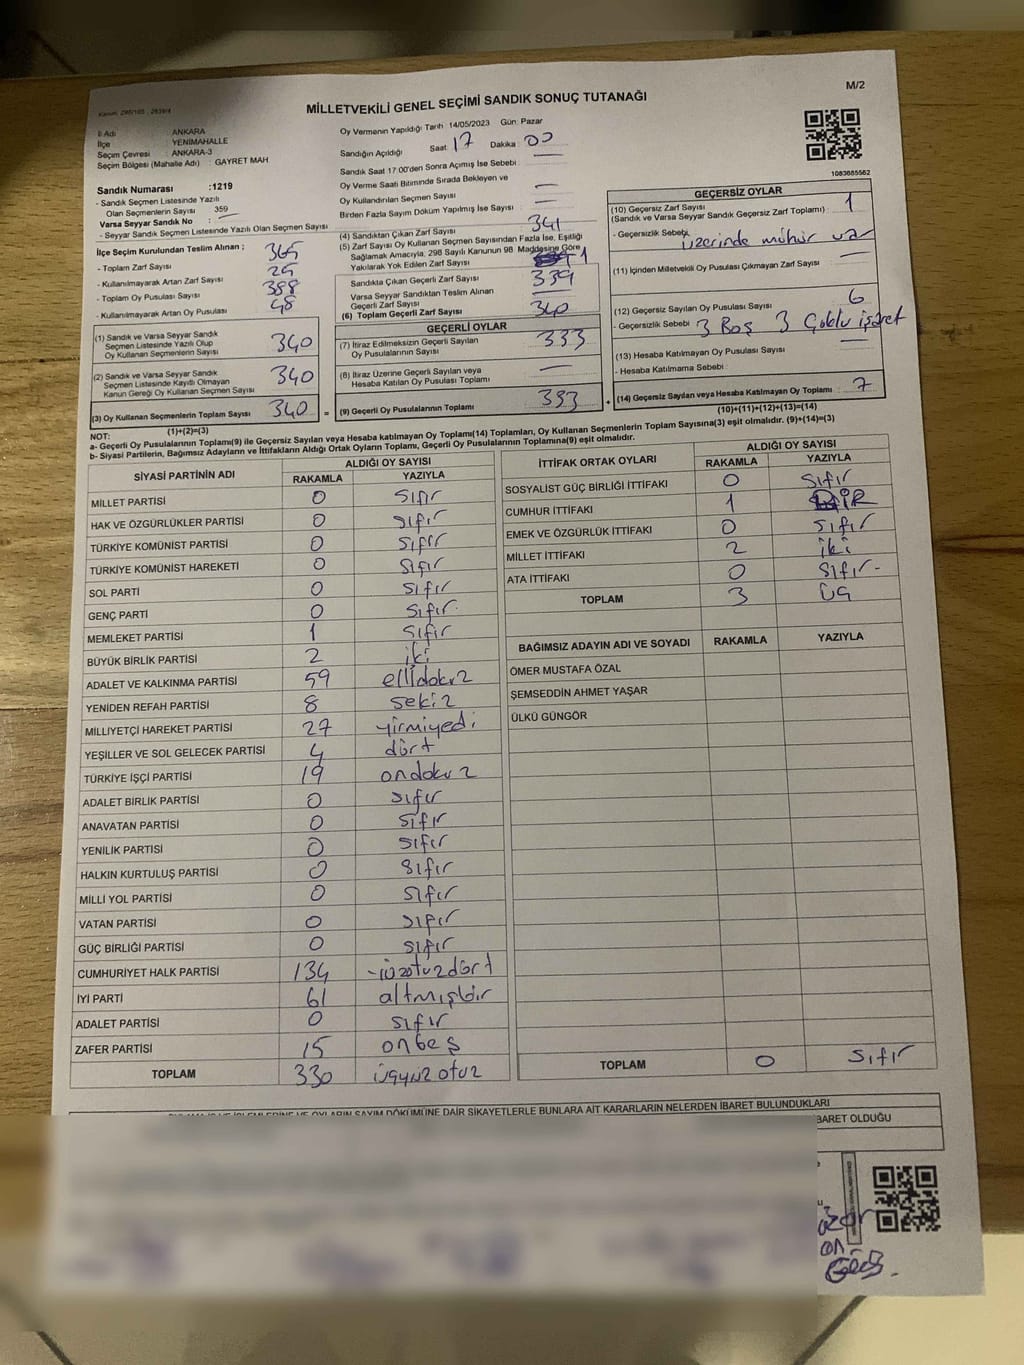 M/2
Kanun: 298/105 , 2839/4
MİLLETVEKİLİ GENEL SEÇİMİ SANDIK SONUÇ TUTANAĞI
İl Adı : ANKARA
İlçe : YENİMAHALLE
Seçim Çevresi : ANKARA-3
Seçim Bölgesi (Mahalle Adı) : GAYRET MAH
Sandık Numarası :1219
- Sandık Seçmen Listesinde Yazılı
Olan Seçmenlerin Sayısı 359
Varsa Seyyar Sandık No : —
- Seyyar Sandık Seçmen Listesinde Yazılı Olan Seçmen Sayısı
İlçe Seçim Kurulundan Teslim Alınan ;
- Toplam Zarf Sayısı 365
- Kullanılmayarak Artan Zarf Sayısı 25
- Toplam Oy Pusulası Sayısı 388
- Kullanılmayarak Artan Oy Pusulası 48
(1) Sandık ve Varsa Seyyar Sandık
Seçmen Listesinde Yazılı Olup
Oy Kullanan Seçmenlerin Sayısı 340
(2) Sandık ve Varsa Seyyar Sandık
Seçmen Listesinde Kayıtlı Olmayan
Kanun Gereği Oy Kullanan Seçmen Sayısı 340
(3) Oy Kullanan Seçmenlerin Toplam Sayısı 340 =
(1)+(2)=(3)
Oy Vermenin Yapıldığı Tarih 14/05/2023 Gün: Pazar
Sandığın Açıldığı Saat 17 Dakika : 00
Sandık Saat 17:00'den Sonra Açılmış İse Sebebi : —
Oy Verme Saati Bitiminde Sırada Bekleyen ve
Oy Kullandırılan Seçmen Sayısı —
Birden Fazla Sayım Döküm Yapılmış İse Sayısı : —
(4) Sandıktan Çıkan Zarf Sayısı 341
(5) Zarf Sayısı Oy Kullanan Seçmen Sayısından Fazla İse, Eşitliği
Sağlamak Amacıyla, 298 Sayılı Kanunun 98. Maddesine Göre
Yakılarak Yok Edilen Zarf Sayısı 1
Sandıkta Çıkan Geçerli Zarf Sayısı 339
Varsa Seyyar Sandıktan Teslim Alınan
Geçerli Zarf Sayısı —
(6) Toplam Geçerli Zarf Sayısı 340
GEÇERLİ OYLAR
(7) İtiraz Edilmeksizin Geçerli Sayılan
Oy Pusulalarının Sayısı 333
(8) İtiraz Üzerine Geçerli Sayılan veya
Hesaba Katılan Oy Pusulası Toplamı —
(9) Geçerli Oy Pusulalarının Toplamı 333 +
1083685562
GEÇERSİZ OYLAR
(10) Geçersiz Zarf Sayısı
(Sandık ve Varsa Seyyar Sandık Geçersiz Zarf Toplamı) : 1
- Geçersizlik Sebebi: üzerinde mühür var
(11) İçinden Milletvekili Oy Pusulası Çıkmayan Zarf Sayısı : —
(12) Geçersiz Sayılan Oy Pusulası Sayısı 6
- Geçersizlik Sebebi 3 Boş 3 Çoklu işaret
(13) Hesaba Katılmayan Oy Pusulası Sayısı —
- Hesaba Katılmama Sebebi
(14) Geçersiz Sayılan veya Hesaba Katılmayan Oy Toplamı : 7
(10)+(11)+(12)+(13)=(14)
NOT:
a- Geçerli Oy Pusulalarının Toplamı(9) ile Geçersiz Sayılan veya Hesaba katılmayan Oy Toplamı(14) Toplamları, Oy Kullanan Seçmenlerin Toplam Sayısına(3) eşit olmalıdır. (9)+(14)=(3)
b- Siyasi Partilerin, Bağımsız Adayların ve İttifakların Aldığı Ortak Oyların Toplamı, Geçerli Oy Pusulalarının Toplamına(9) eşit olmalıdır.
SİYASİ PARTİNİN ADI ALDIĞI OY SAYISI
RAKAMLA YAZIYLA
MİLLET PARTİSİ 0 sıfır
HAK VE ÖZGÜRLÜKLER PARTİSİ 0 sıfır
TÜRKİYE KOMÜNİST PARTİSİ 0 sıfır
TÜRKİYE KOMÜNİST HAREKETİ 0 sıfır
SOL PARTİ 0 sıfır
GENÇ PARTİ 0 sıfır
MEMLEKET PARTİSİ 1 sıfır
BÜYÜK BİRLİK PARTİSİ 2 iki
ADALET VE KALKINMA PARTİSİ 59 ellidokuz
YENİDEN REFAH PARTİSİ 8 sekiz
MİLLİYETÇİ HAREKET PARTİSİ 27 yirmiyedi
YEŞİLLER VE SOL GELECEK PARTİSİ 4 dört
TÜRKİYE İŞÇİ PARTİSİ 19 ondokuz
ADALET BİRLİK PARTİSİ 0 sıfır
ANAVATAN PARTİSİ 0 sıfır
YENİLİK PARTİSİ 0 sıfır
HALKIN KURTULUŞ PARTİSİ 0 sıfır
MİLLİ YOL PARTİSİ 0 sıfır
VATAN PARTİSİ 0 sıfır
GÜÇ BİRLİĞİ PARTİSİ 0 sıfır
CUMHURİYET HALK PARTİSİ 134 yüzotuzdört
İYİ PARTİ 61 altmışbir
ADALET PARTİSİ 0 sıfır
ZAFER PARTİSİ 15 onbeş
TOPLAM 330 üçyüzotuz
İTTİFAK ORTAK OYLARI ALDIĞI OY SAYISI
RAKAMLA YAZIYLA
SOSYALİST GÜÇ BİRLİĞİ İTTİFAKI 0 sıfır
CUMHUR İTTİFAKI 1 BİR
EMEK VE ÖZGÜRLÜK İTTİFAKI 0 sıfır
MİLLET İTTİFAKI 2 iki
ATA İTTİFAKI 0 sıfır-
TOPLAM 3 üç
BAĞIMSIZ ADAYIN ADI VE SOYADI RAKAMLA YAZIYLA
ÖMER MUSTAFA ÖZAL
ŞEMSEDDİN AHMET YAŞAR
ÜLKÜ GÜNGÖR
TOPLAM 0 sıfır
OYLARIN SAYIM DÖKÜMÜNE DAİR ŞİKAYETLERLE BUNLARA AİT KARARLARIN NELERDEN İBARET BULUNDUKLARI
İBARET OLDUĞU